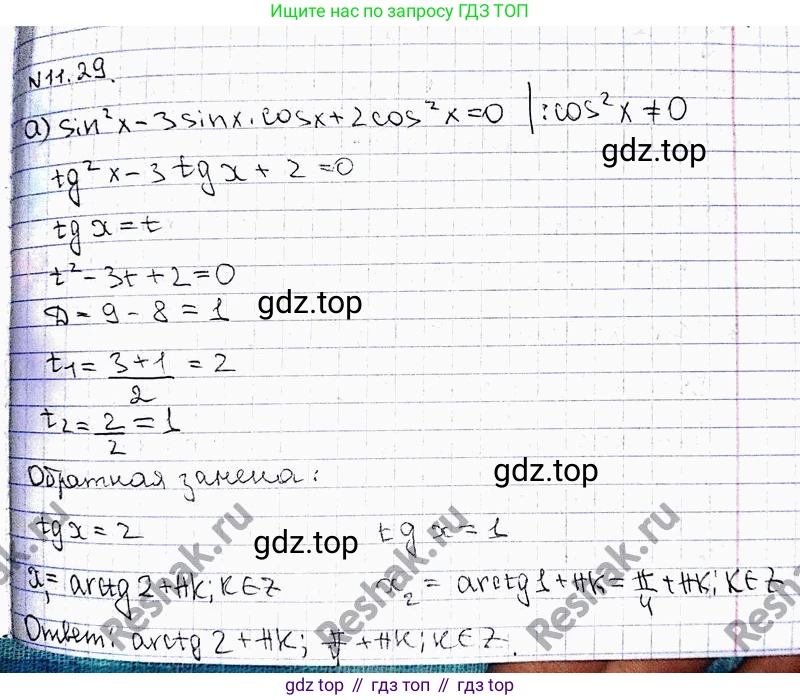 Ищите нас по запросу ГДЗ ТОП
N11.29.
а) sin²x - 3sinx·cosx + 2cos²x = 0 | : cos²x ≠ 0
gdz.top
tg²x - 3tgx + 2 = 0
tgx = t
t² - 3t + 2 = 0
D = 9 - 8 = 1
gdz.top
t₁ = (3+1)/2 = 2
t₂ = 2/2 = 1
Обратная замена:
gdz.top
tgx = 2 tgx = 1
gdz.top
x₁ = arctg2 + πk; k∈Z x₂ = arctg1 + πk = π/4 + πk; k∈Z
Ответ: arctg2 + πk; π/4 + πk; k∈Z.
Reshak.ru
Reshak.ru
Reshak.ru
Reshak.ru
gdz.top // гдз.топ // gdz.top // гдз.топ